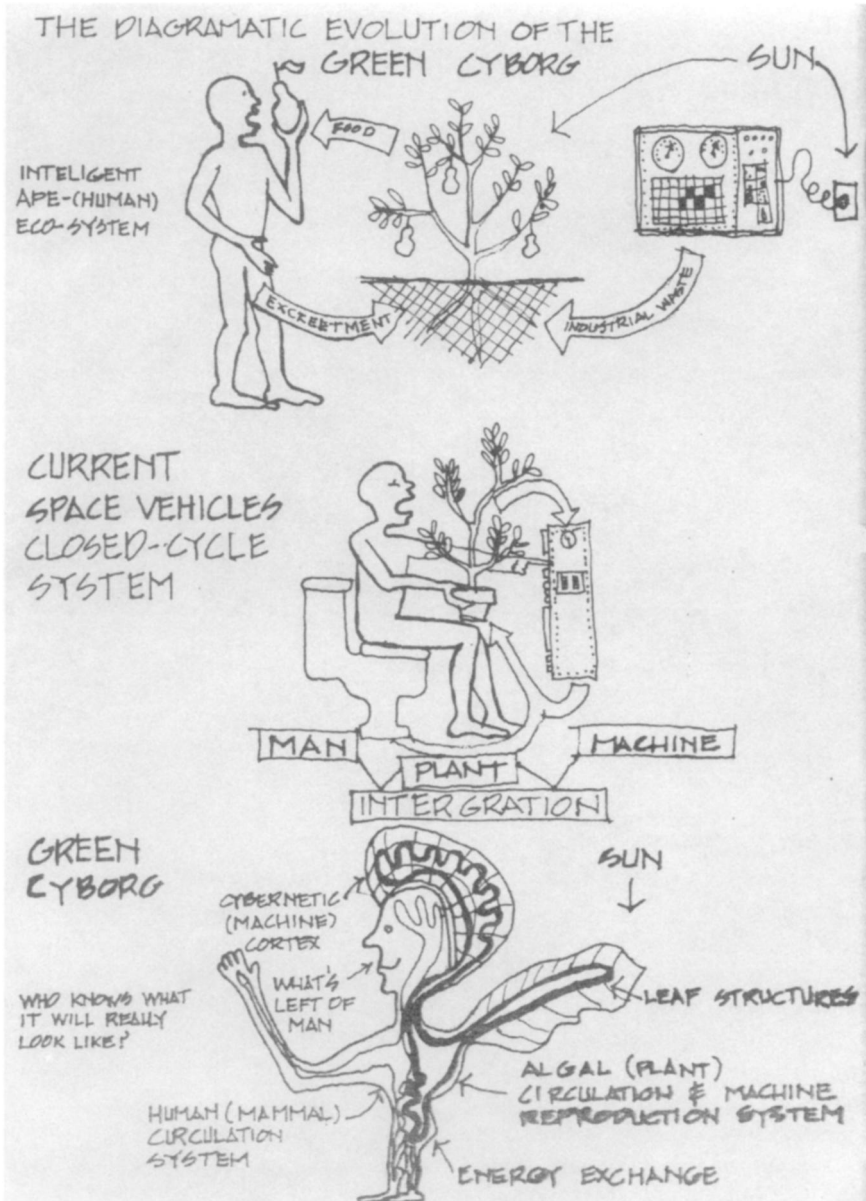 THE DIAGRAMATIC EVOLUTION OF THE
GREEN CYBORG
SUN
FOOD
INTELIGENT
APE-(HUMAN)
ECO-SYSTEM
EXCEERTMENT
INDUSTRIAL WASTE
CURRENT
SPACE VEHICLES
CLOSED-CYCLE
SYSTEM
MAN
PLANT
MACHINE
INTERGRATION
GREEN
CYBORG
SUN
CYBERNETIC
(MACHINE)
CORTEX
WHAT'S
LEFT OF
MAN
WHO KNOWS WHAT
IT WILL REALLY
LOOK LIKE?
LEAF STRUCTURES
ALGAL (PLANT)
CIRCULATION & MACHINE
REPRODUCTION SYSTEM
HUMAN (MAMMAL)
CIRCULATION
SYSTEM
ENERGY EXCHANGE